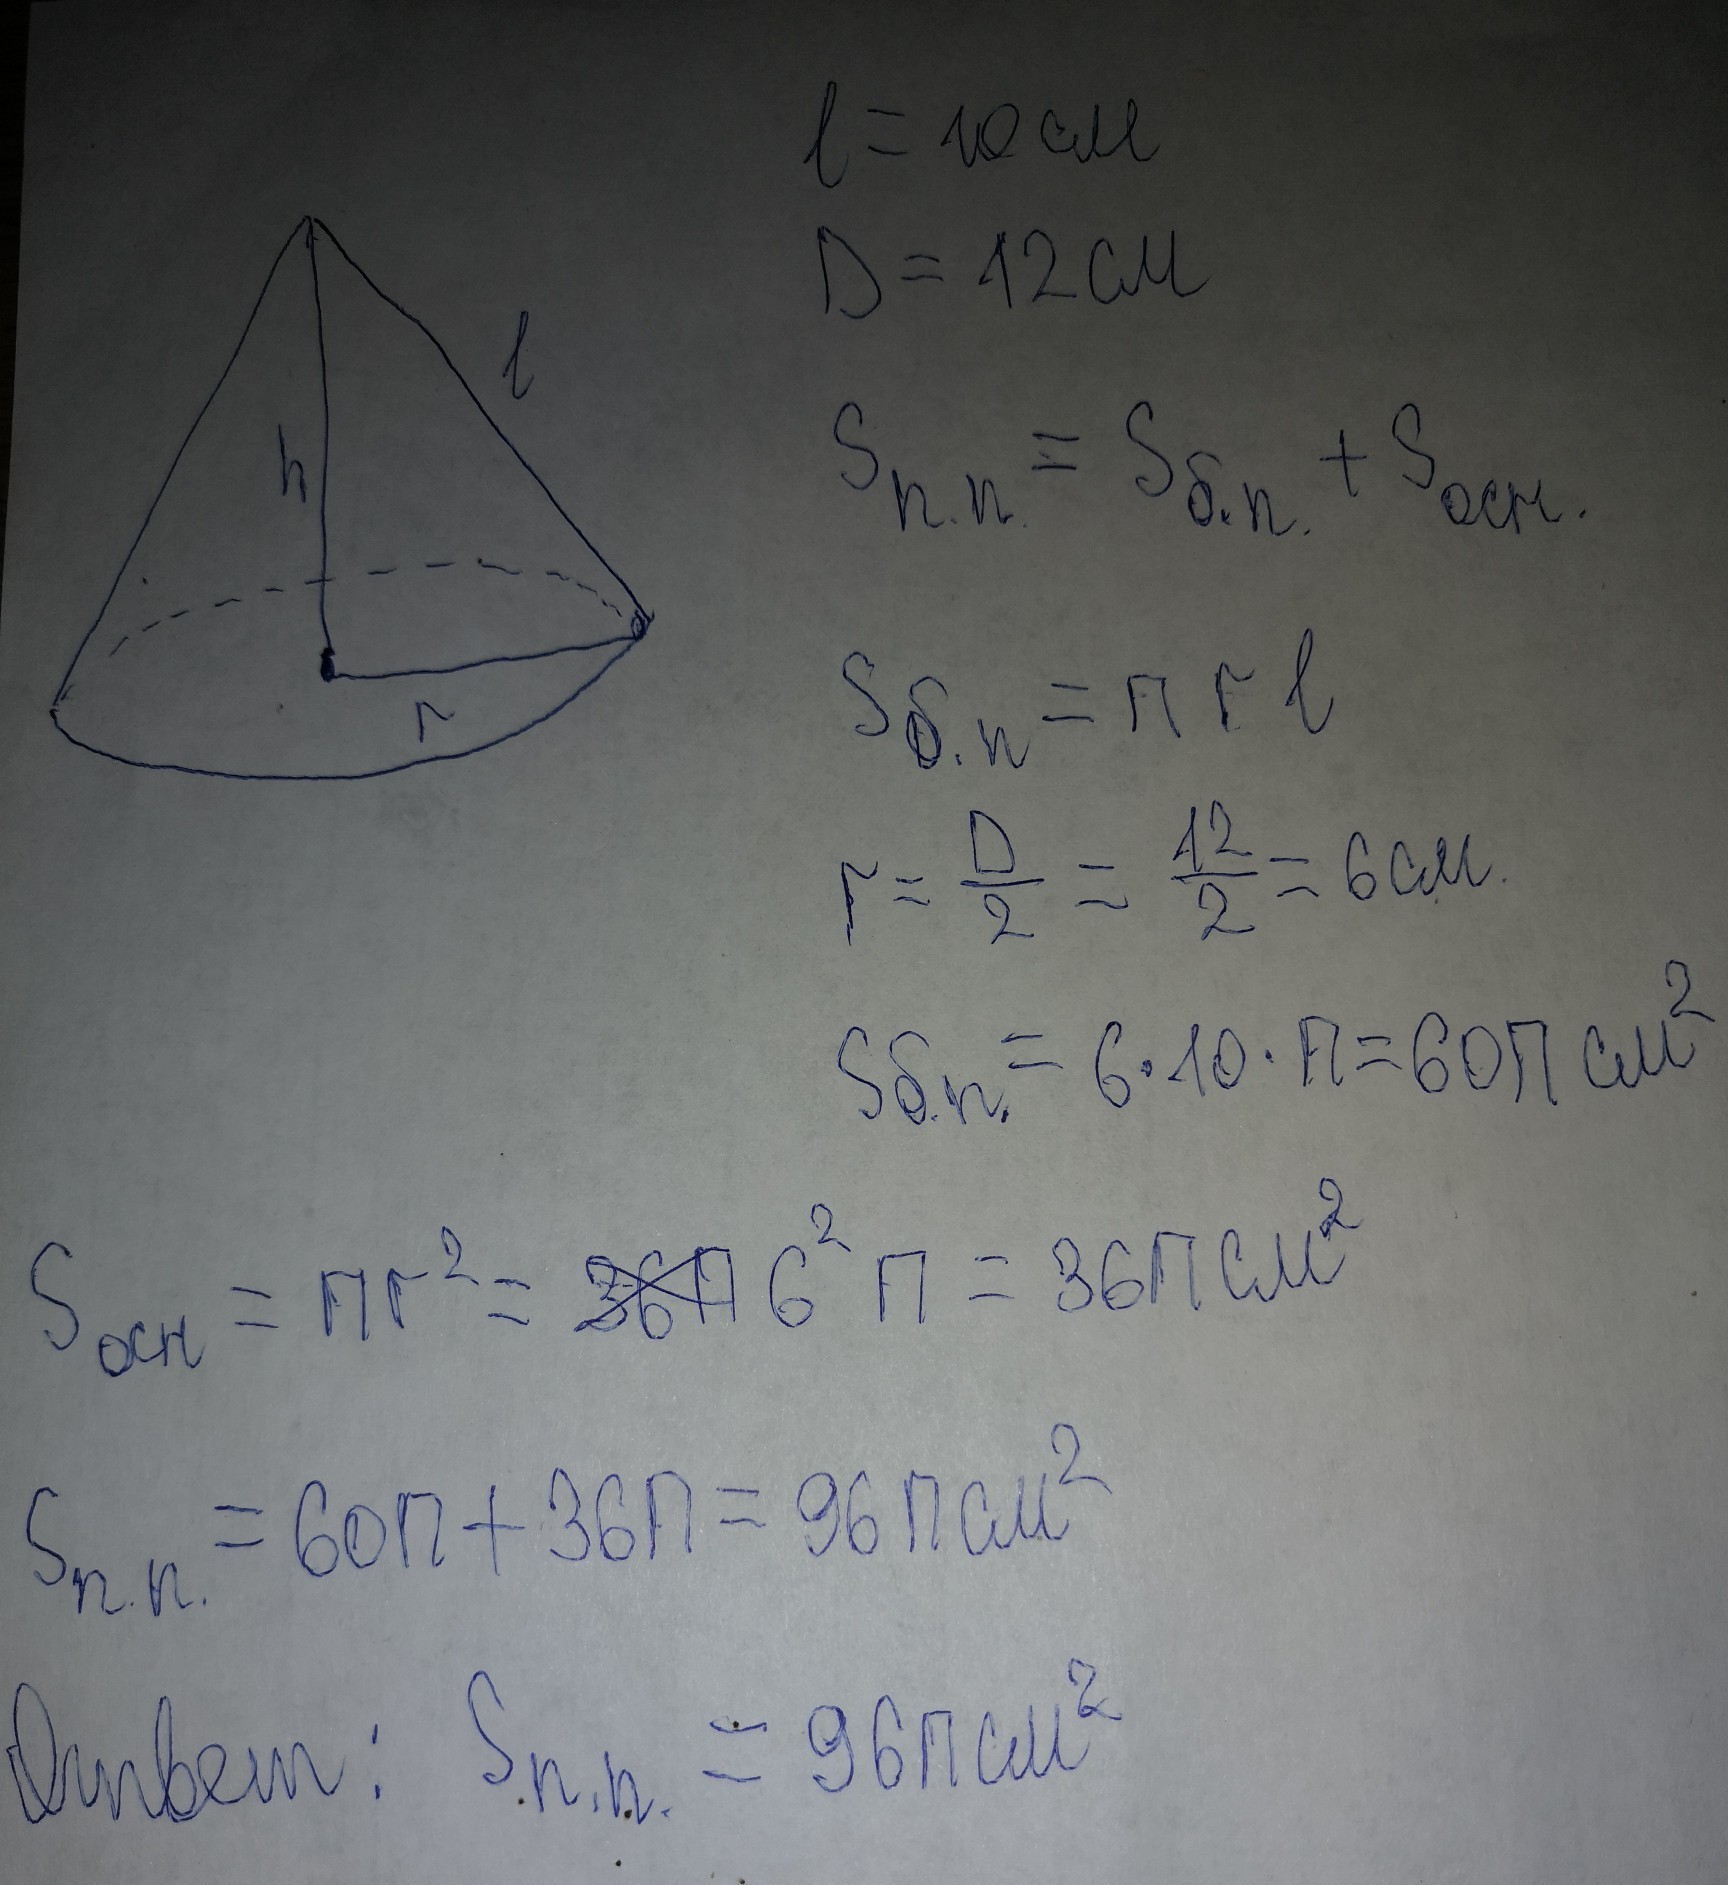 l = 10 см
D = 12 см
h
l
r
Sп.п. = Sб.п. + Sосн.
Sб.п = π r l
r = D/2 = 12/2 = 6 см.
Sб.п. = 6 · 10 · π = 60π см²
Sосн = πr² = 36π 6² π = 36π см²
Sп.п. = 60π + 36π = 96π см²
Ответ: Sп.п. = 96π см²